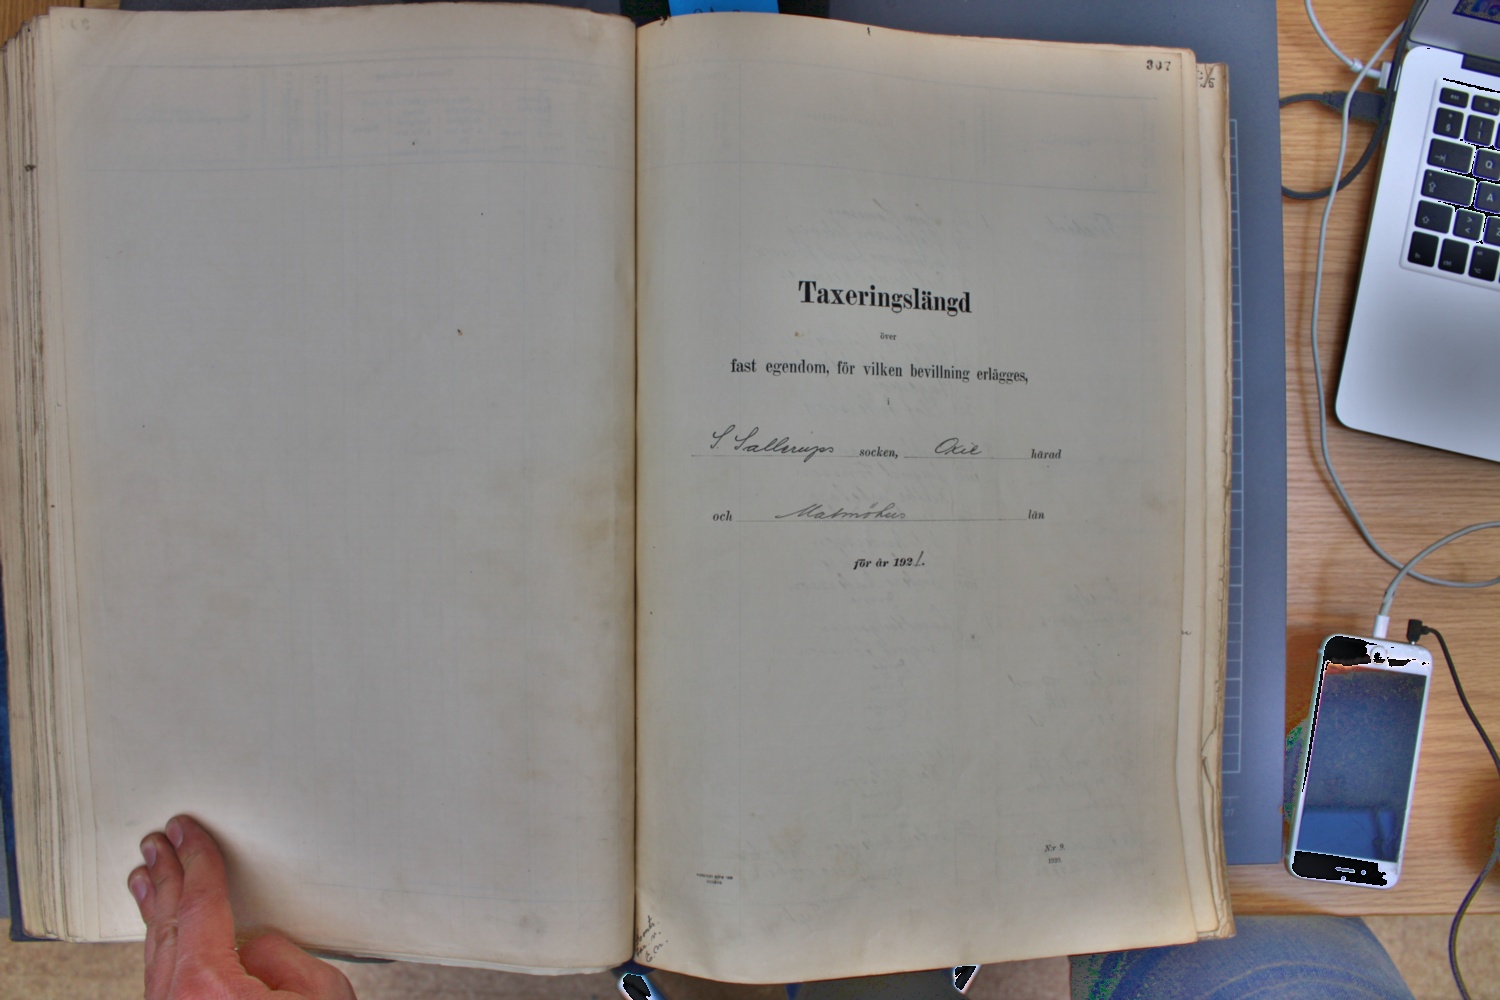 307
Taxeringslängd
över
fast egendom, för vilken bevillning erlägges,
i
S Sallerups socken, Oxie härad
och Malmöhus län
för år 1921.
N:r 9.